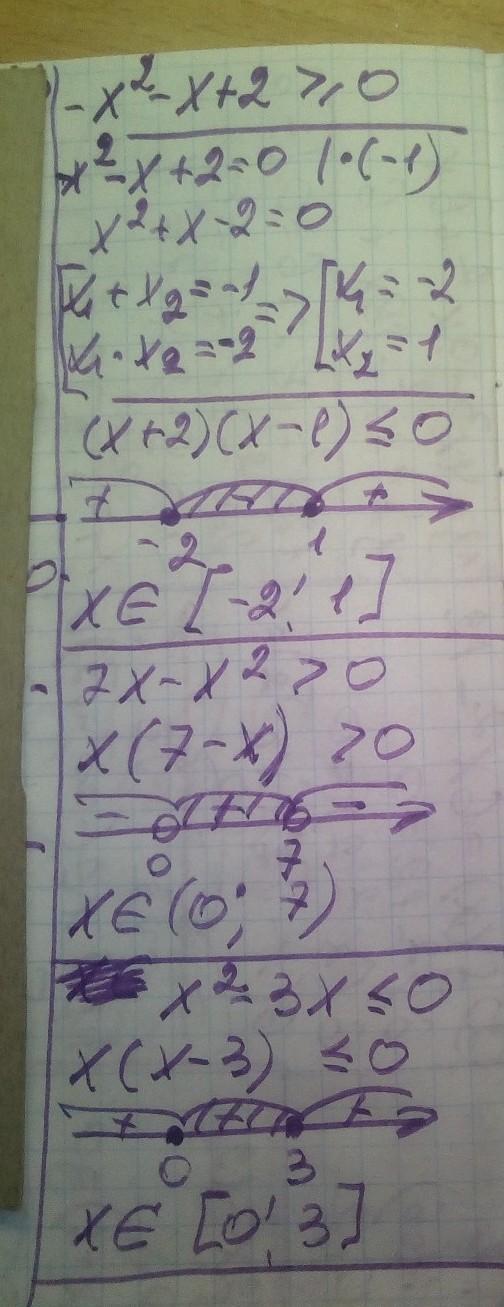 -x²-x+2≥0
-x²-x+2=0 |·(-1)
x²+x-2=0
[x₁+x₂=-1 => [x₁=-2
[x₁·x₂=-2 [x₂=1
(x+2)(x-1)≤0
+ - +
-2 1
x∈[-2; 1]
7x-x²>0
x(7-x) >0
- + -
0 7
x∈(0; 7)
x²-3x≤0
x(x-3) ≤0
+ + +
0 3
x∈[0; 3]